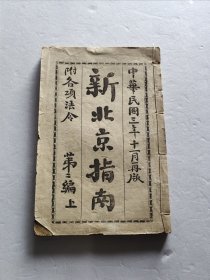 中華民國三年十一月再版
新北京指南
第二編 上
附各項法令